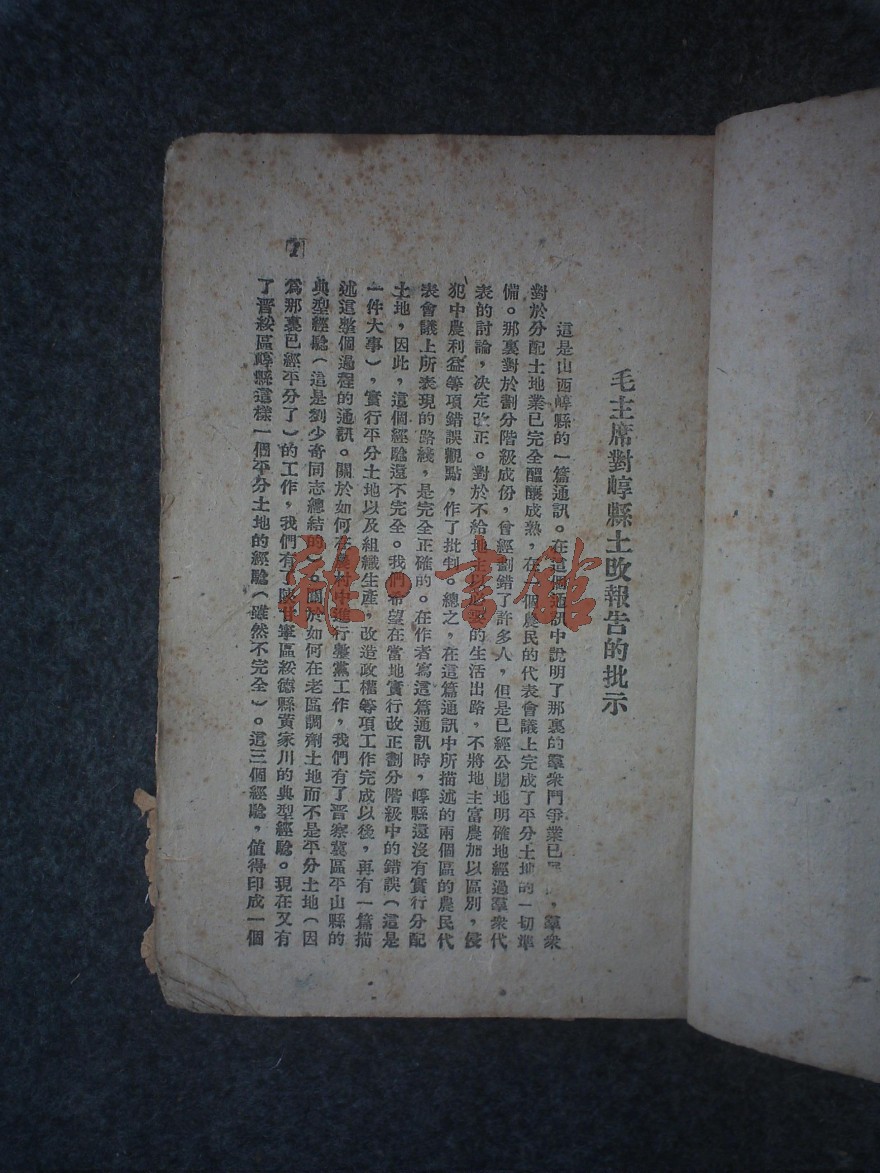 毛主席對崞縣土改報告的批示
這是山西崞縣的一篇通訊。在這個通訊中說明了那裏的羣衆鬥爭業已，羣衆
對於分配土地業已完全醞釀成熟，在一個農民的代表會議上完成了平分土地的一切準
備。那裏對於劃分階級成份，曾經劃錯了許多人，但是已經公開地明確地經過羣衆代
表的討論，决定改正。對於不給地主以必要的生活出路，不將地主富農加以區別，侵
犯中農利益等項錯誤觀點，作了批判。總之，在這篇通訊中所描述的兩個區的農民代
表會議上所表現的路綫，是完全正確的。在作者寫這篇通訊時，崞縣還沒有實行分配
土地，因此，這個經驗還不完全。我們希望在當地實行改正劃分階級中的錯誤（這是
一件大事），實行平分土地以及組織生產，改造政權等項工作完成以後，再有一篇描
述這整個過程的通訊。關於如何在農村中進行整黨工作，我們有了晋察冀區平山縣的
典型經驗（這是劉少奇同志總結的）。關於如何在老區調劑土地而不是平分土地（因
爲那裏已經平分了）的工作，我們有了陝甘寧區綏德縣黃家川的典型經驗。現在又有
了晋綏區崞縣這樣一個平分土地的經驗（雖然不完全）。這三個經驗，值得印成一個
1
雜·書館